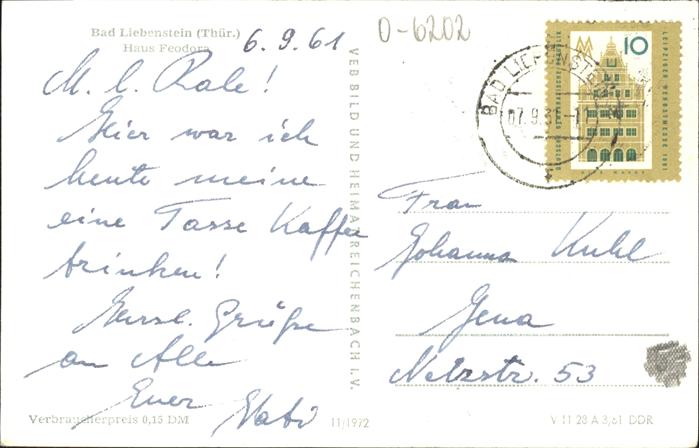 Bad Liebenstein (Thür.)
Haus Feodora
6.9.61
0-6202
M. l.
Hier war ich
heute meine
eine Tasse Kaffee
trinken!
Herzl. Grüße
an Alle
Euer
Verbraucherpreis 0,15 DM
11/1972
VEB BILD UND HEIMAT REICHENBACH I. V.
10
LEIPZIGER HERBSTMESSE 1961
DEUTSCHE DEMOKRATISCHE REPUBLIK
BAD LIEBENSTEIN
07.9.61-11
Frau
Johanna Kuhl
Jena
Netzstr. 53
V 11 28 A 3/61 DDR